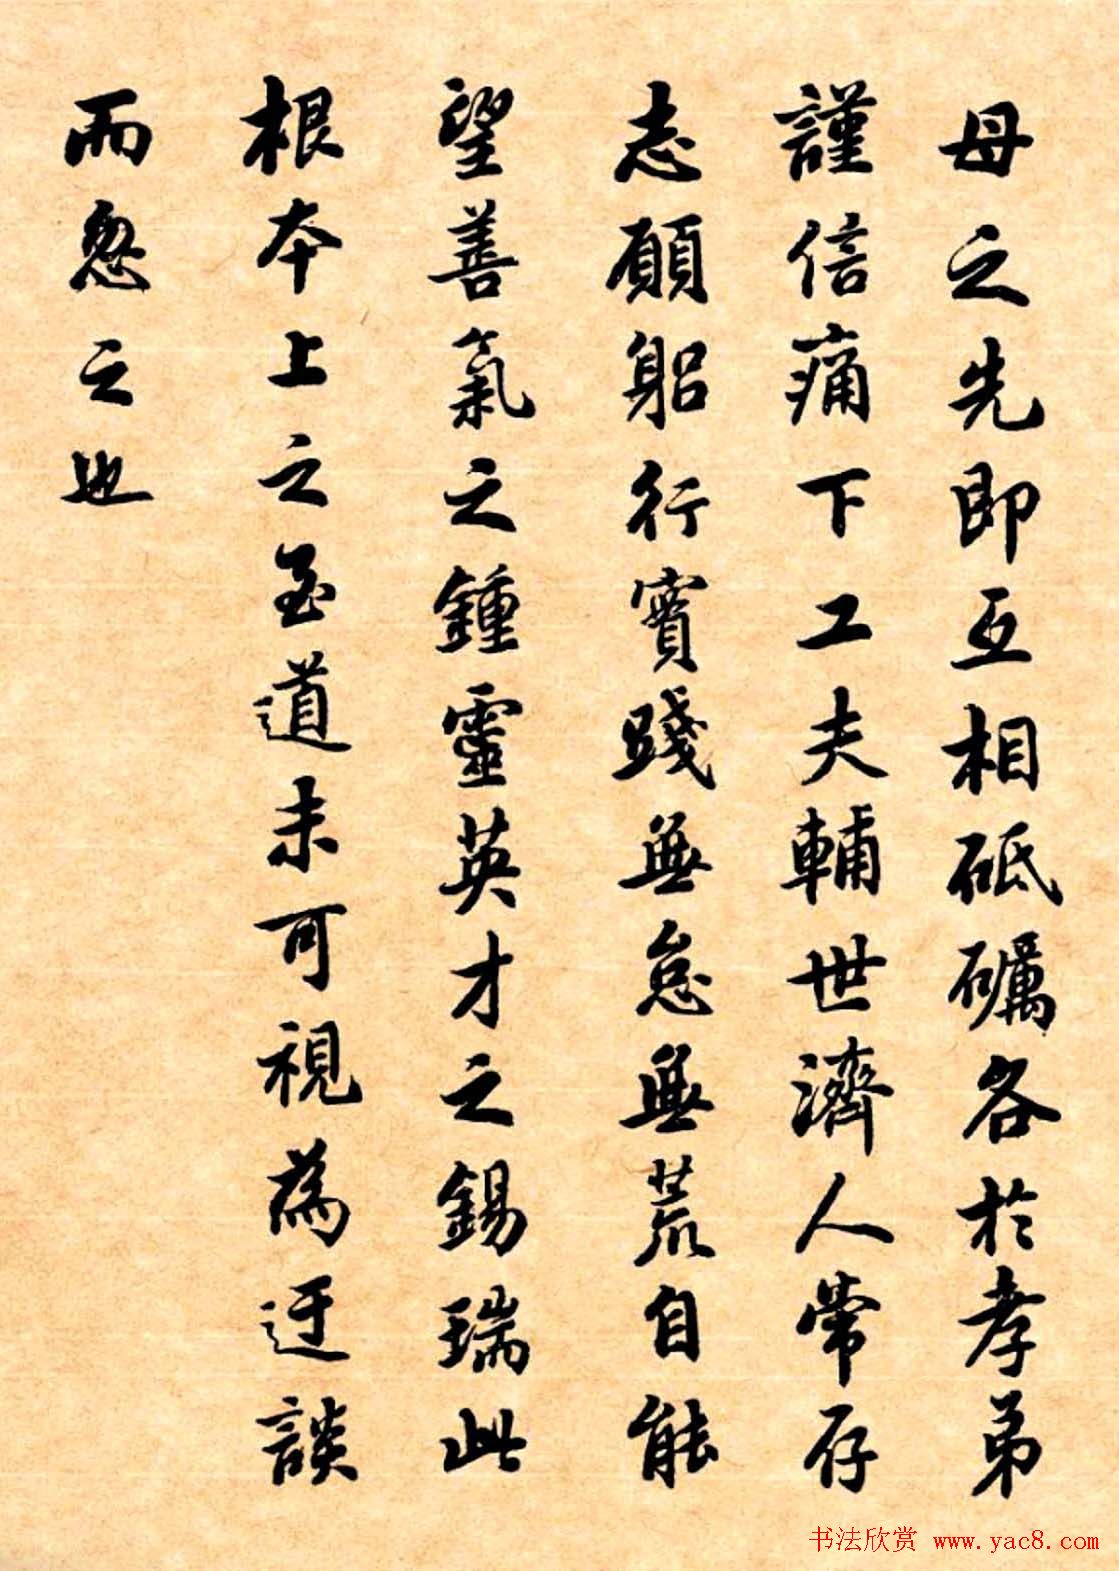 母之先即互相砥礪各於孝弟
謹信痛下工夫輔世濟人常存
志願躬行實踐無怠無荒自能
望善氣之鍾靈英才之錫瑞此
根本上之至道未可視為迂談
而忽之也
书法欣赏 www.yac8.com